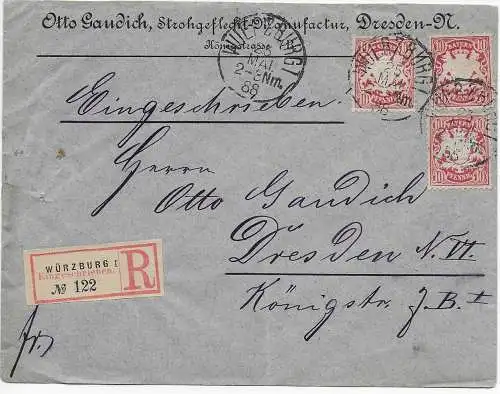 Otto Gaudich, Strohgeflecht-Manufactur, Dresden-N.
Königstrasse
WUERZBURG I
MAI
2-3 Nm.
88
BAYERN
10 10
PFENNIG
BAYERN
10 10
PFENNIG
BAYERN
10 10
PFENNIG
Eingeschrieben.
Herrn
Otto Gaudich
Dresden N. VI.
Königstr.
WÜRZBURG I
Eingeschrieben.
№ 122
R
fr.